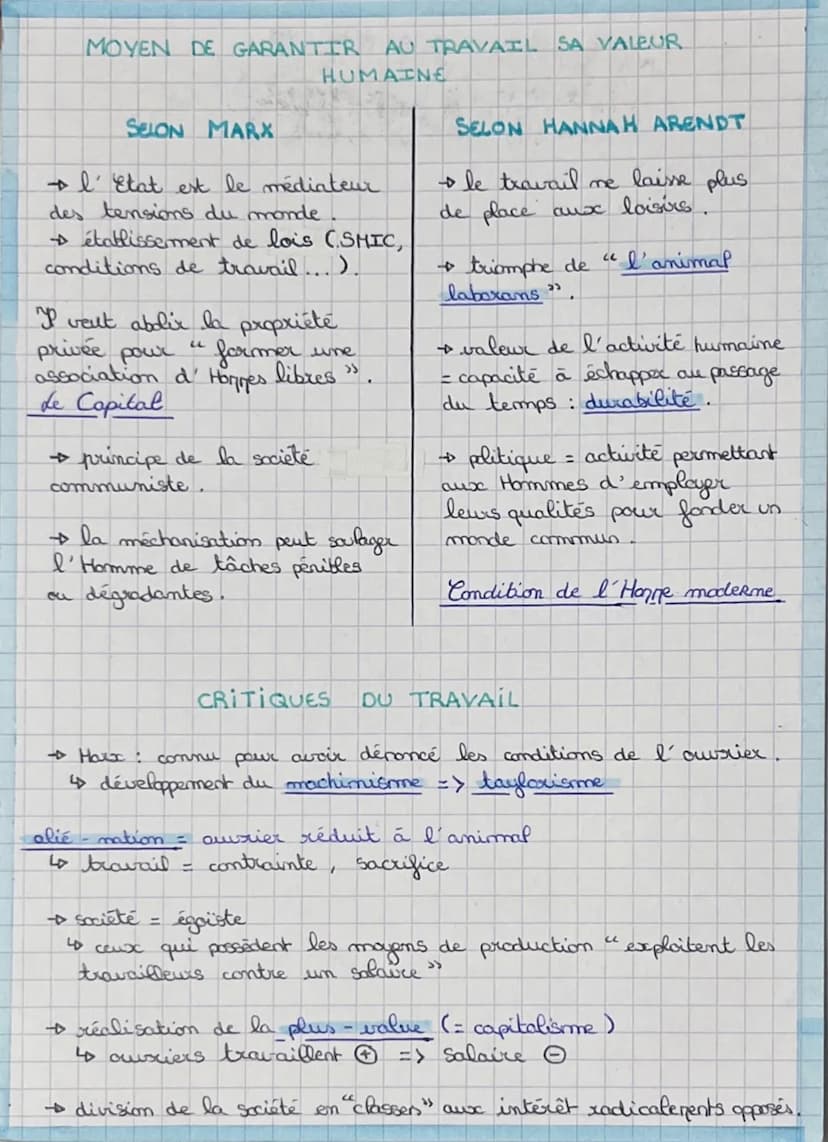 MOYEN DE GARANTIR AU TRAVAIL SA VALEUR
HUMAINE
SELON MARX
→ l'Etat est le médiateur
des tensions du monde.
→ établissement de lois (SMIC,
conditions de travail...).
Il veut abolir la propriété
privée pour " former une
association d'Hommes libres ".
Le Capital
→ principe de la société
communiste.
→ la méchanisation peut soulager
l'Homme de tâches pénibles
ou dégradantes.
SELON HANNAH ARENDT
→ le travail ne laisse plus
de place aux loisirs.
→ triomphe de " l'animal
laborans ".
→ valeur de l'activité humaine
= capacité à échapper au passage
du temps : durabilité.
→ politique = activité permettant
aux Hommes d'employer
leurs qualités pour fonder un
monde commun.
Condition de l'Homme moderne
CRITIQUES DU TRAVAIL
→ Marx : connu pour avoir dénoncé les conditions de l'ouvrier.
↳ développement du machinisme => taylorisme
alié-nation = ouvrier réduit à l'animal
↳ travail = contrainte, sacrifice
→ société = égoïste
↳ ceux qui possèdent les moyens de production " exploitent les
travailleurs contre un salaire "
→ réalisation de la plus-value (= capitalisme)
↳ ouvriers travaillent ⊕ => salaire ⊖
→ division de la société en "classes" aux intérêt radicalements opposés.